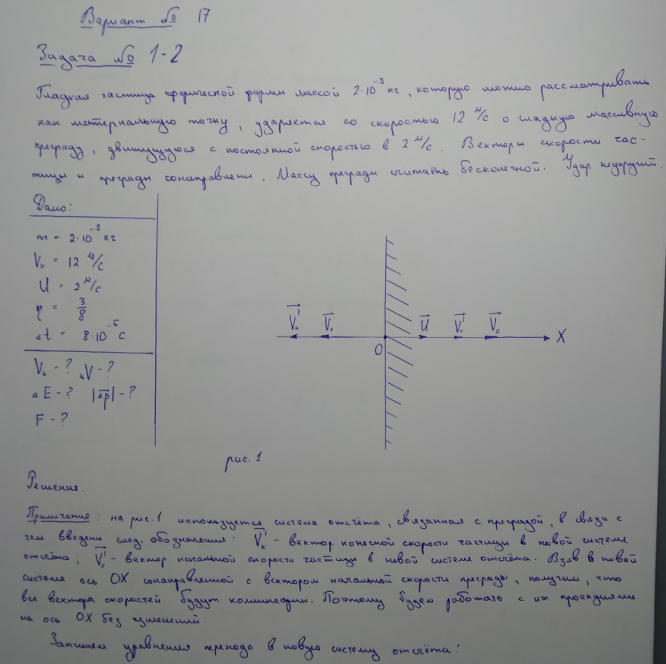 Вариант № 17
Задача № 1-2
Гладкая частица сферической формы массой 2·10⁻³ кг, которую можно рассматривать
как материальную точку, ударяется со скоростью 12 м/с о гладкую массивную
преграду, движущуюся с постоянной скоростью в 2 м/с. Векторы скорости час-
тицы и преграды сонаправлены. Массу преграды считать бесконечной. Удар неупругий.
Дано:
m = 2·10⁻³ кг
V₀ = 12 м/с
U = 2 м/с
η = 3/8
Δt = 8·10⁻⁵ с
Vₖ - ? ΔV - ?
ΔE - ? |Δp| - ?
F - ?
Vₖ' Vₖ O U V₀' V₀ X
рис. 1
Решение.
Примечание: на рис. 1 используется система отсчёта, связанная с преградой, в связи с
чем введены след. обозначения: Vₖ' - вектор конечной скорости частицы в новой системе
отсчёта; V₀' - вектор начальной скорости частицы в новой системе отсчёта. Взяв в новой
системе ось OX сонаправленной с вектором начальной скорости преграды, получим, что
все вектора скоростей будут коллинеарны. Поэтому будем работать с их проекциями
на ось OX без изменений.
Запишем уравнения перехода в новую систему отсчёта: